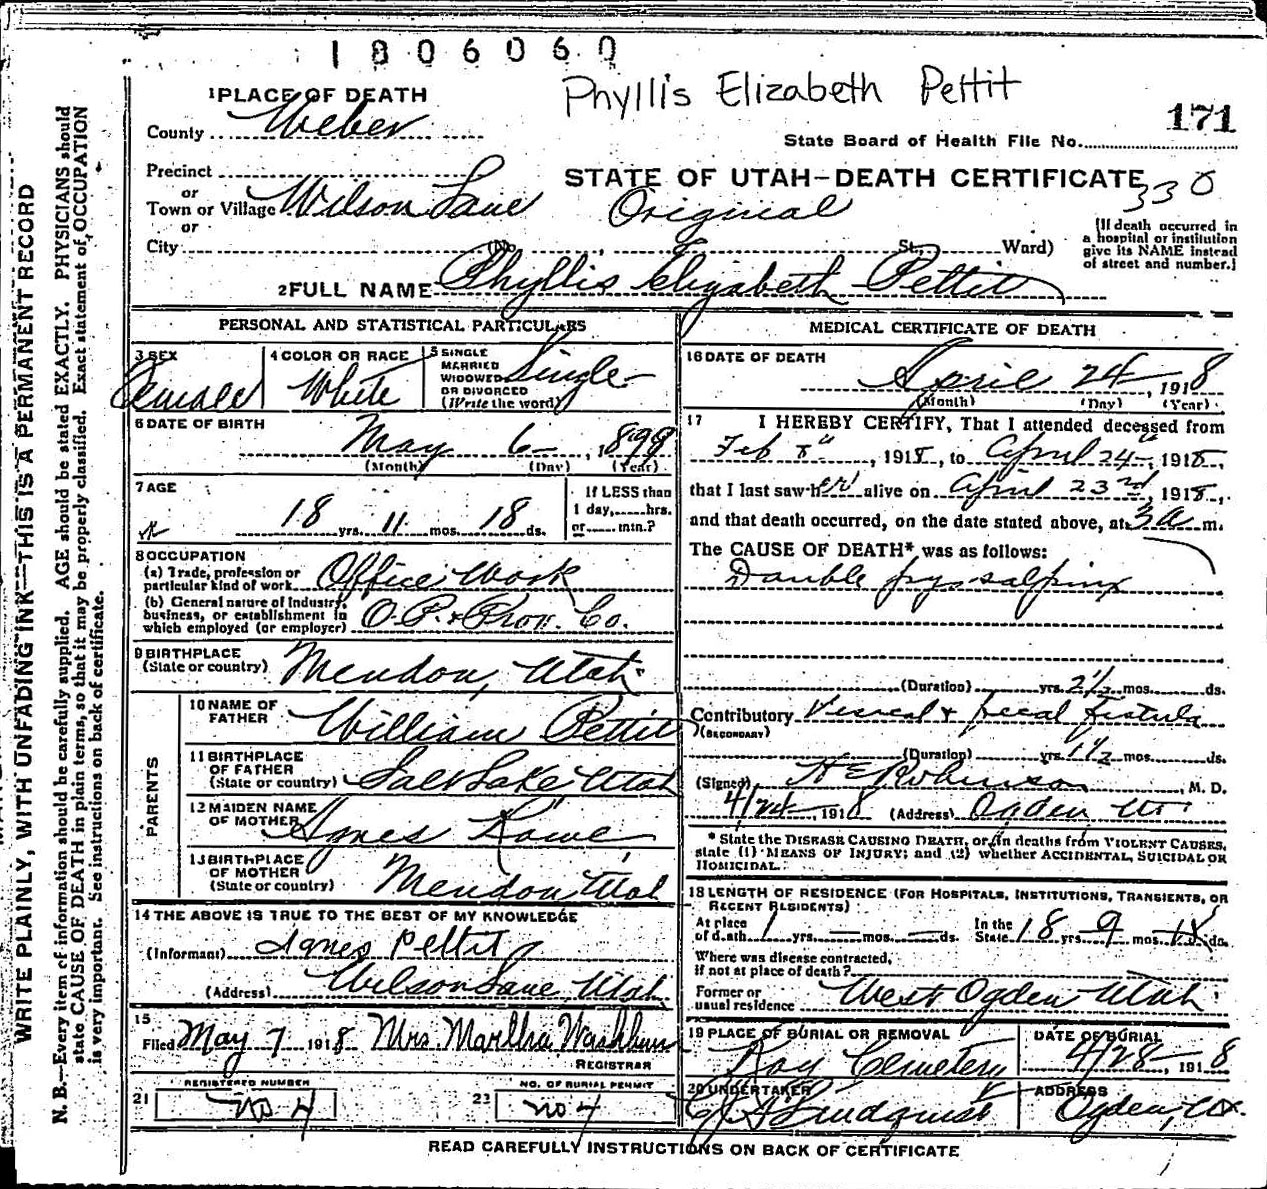 1806060
Phyllis Elizabeth Pettit
1 PLACE OF DEATH
171
County Weber
State Board of Health File No.
Precinct
STATE OF UTAH—DEATH CERTIFICATE
330
or
Town or Village Wilson Lane Original
or
City (No. , St., Ward)
[If death occurred in
a hospital or institution
give its NAME instead
of street and number.]
2 FULL NAME Phyllis Elizabeth Pettit
PERSONAL AND STATISTICAL PARTICULARS
3 SEX Female
4 COLOR OR RACE White
5 SINGLE
MARRIED
WIDOWED
OR DIVORCED
(Write the word) Single
6 DATE OF BIRTH
May 6 , 1899
(Month) (Day) (Year)
7 AGE
18 yrs. 11 mos. 18 ds.
If LESS than
1 day, hrs.
or min.?
8 OCCUPATION
(a) Trade, profession or
particular kind of work Office Work
(b) General nature of Industry,
business, or establishment in
which employed (or employer) O.P. & Prov. Co.
9 BIRTHPLACE
(State or country) Mendon, Utah
PARENTS
10 NAME OF
FATHER William Pettit
11 BIRTHPLACE
OF FATHER
(State or country) Salt Lake Utah
12 MAIDEN NAME
OF MOTHER Agnes
13 BIRTHPLACE
OF MOTHER
(State or country) Mendon, Utah
14 THE ABOVE IS TRUE TO THE BEST OF MY KNOWLEDGE
(Informant) Agnes Pettit
(Address) Wilson Lane, Utah
15
Filed May 7 1918 Mrs. Martha Washburn
REGISTRAR
REGISTERED NUMBER
21 No 4
NO. OF BURIAL PERMIT
22 no 4
MEDICAL CERTIFICATE OF DEATH
16 DATE OF DEATH
April 24 , 1918
(Month) (Day) (Year)
17 I HEREBY CERTIFY, That I attended deceased from
Feb 8" , 1918, to April 24 , 1918,
that I last saw her alive on April 23rd , 1918,
and that death occurred, on the date stated above, at 3 a m.
The CAUSE OF DEATH* was as follows:
Double pyo-salpinx
(Duration) yrs. 2 1/2 mos. ds.
Contributory Vesical & fecal fistula
(SECONDARY)
(Duration) yrs. 1 1/2 mos. ds.
(Signed) H E Robinson , M. D.
4/24 , 1918 (Address) Ogden Ut
* State the DISEASE CAUSING DEATH, or, in deaths from VIOLENT CAUSES,
state (1) MEANS OF INJURY; and (2) whether ACCIDENTAL, SUICIDAL OR
HOMICIDAL.
18 LENGTH OF RESIDENCE (FOR HOSPITALS, INSTITUTIONS, TRANSIENTS, OR
RECENT RESIDENTS)
At place
of death 1 yrs. — mos. — ds.
In the
State 18 yrs. 9 mos. 18 ds.
Where was disease contracted,
if not at place of death?
Former or
usual residence West Ogden Utah
19 PLACE OF BURIAL OR REMOVAL
Roy Cemetery
DATE OF BURIAL
4/28 , 1918
20 UNDERTAKER
Lindquist
ADDRESS
Ogden,
READ CAREFULLY INSTRUCTIONS ON BACK OF CERTIFICATE
WRITE PLAINLY, WITH UNFADING INK—THIS IS A PERMANENT RECORD
N. B.—Every item of information should be carefully supplied. AGE should be stated EXACTLY. PHYSICIANS should
state CAUSE OF DEATH in plain terms, so that it may be properly classified. Exact statement of OCCUPATION
is very important. See instructions on back of certificate.